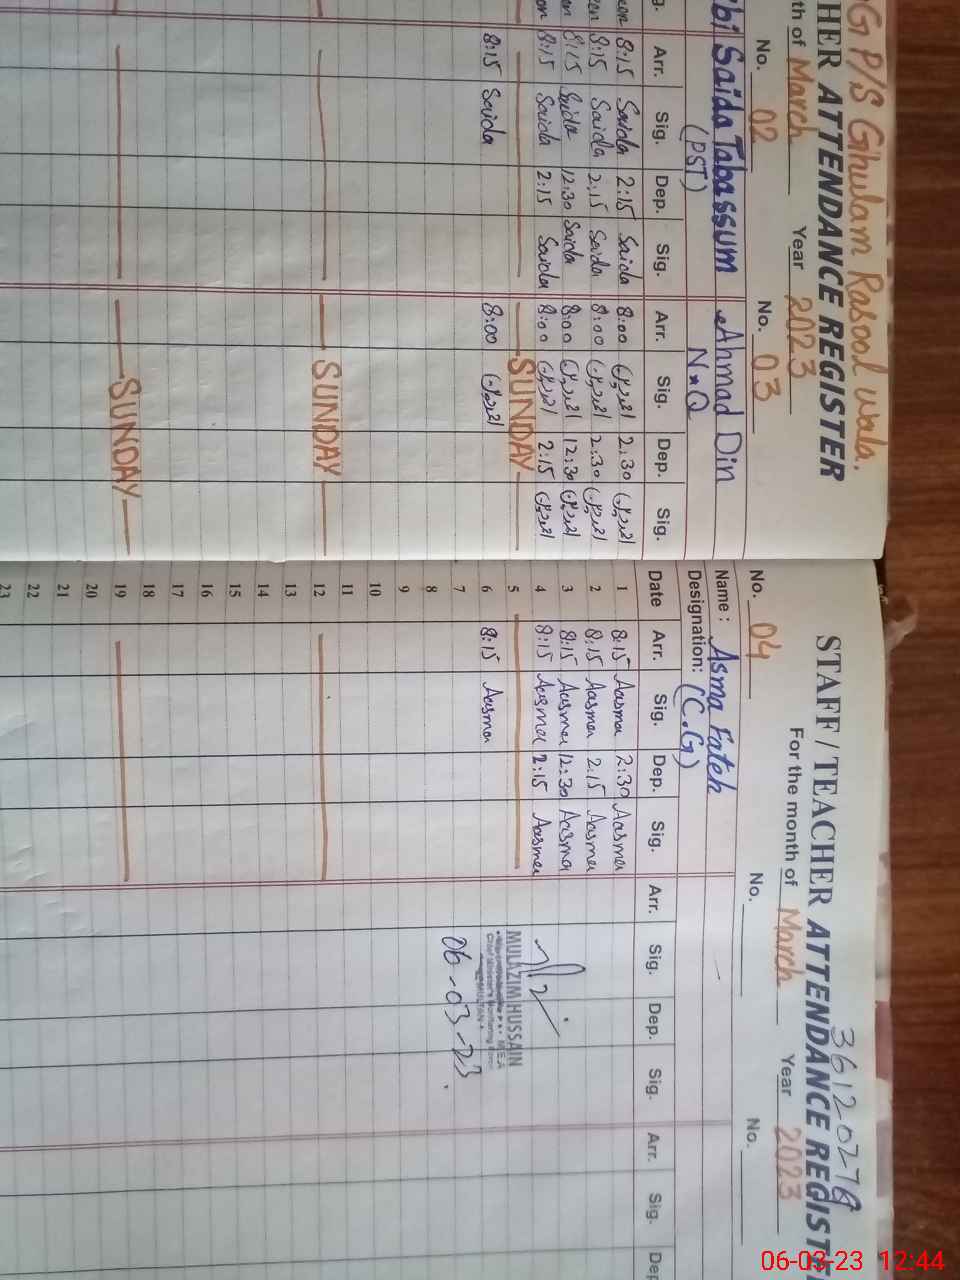 G P/S Ghulam Rasool wala.
HER ATTENDANCE REGISTER
th of March Year 2023
No. 02 No. 03
bi Saida Tabassum Ahmad Din
(PST) N*Q
Arr. Sig. Dep. Sig. Arr. Sig. Dep. Sig.
8:15 Saida 2:15 Saida 8:00 2:30
8:15 Saida 2:15 Saida 8:00 2:30
8:15 Saida 12:30 Saida 8:00 12:30
8:15 Saida 2:15 Saida 8:00 2:15
SUNDAY
8:15 Saida 8:00
SUNDAY
SUNDAY
36120276
STAFF / TEACHER ATTENDANCE REGISTE
For the month of March Year 2023
No. 04 No. No.
Name : Asma Fateh
Designation: (C.G)
Date Arr. Sig. Dep. Sig. Arr. Sig. Dep. Sig. Arr. Sig. Dep
1 8:15 Aasma 2:30 Aasma
2 8:15 Aasma 2:15 Aasma
3 8:15 Aasma 12:30 Aasma
4 8:15 Aasma 2:15 Aasma
5
6 8:15 Aasma
7
8
9
10
11
12
13
14
15
16
17
18
19
20
21
22
23
MULAZIM HUSSAIN
M.E.A
Chief Minister's Monitoring Force
MULTAN
06-03-23
06-03-23 12:44